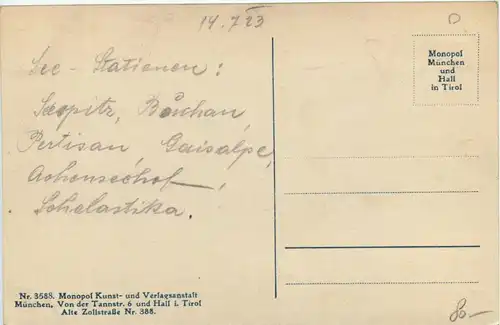 14.7.23
D
See-Stationen:
Seespitz, Buchau,
Pertisau Gaisalpe,
Achenseehof,
Scholastika.
Monopol
München
und
Hall
in Tirol
Nr. 3588. Monopol Kunst- und Verlagsanstalt
München, Von der Tannstr. 6 und Hall i. Tirol
Alte Zollstraße Nr. 388.
80-